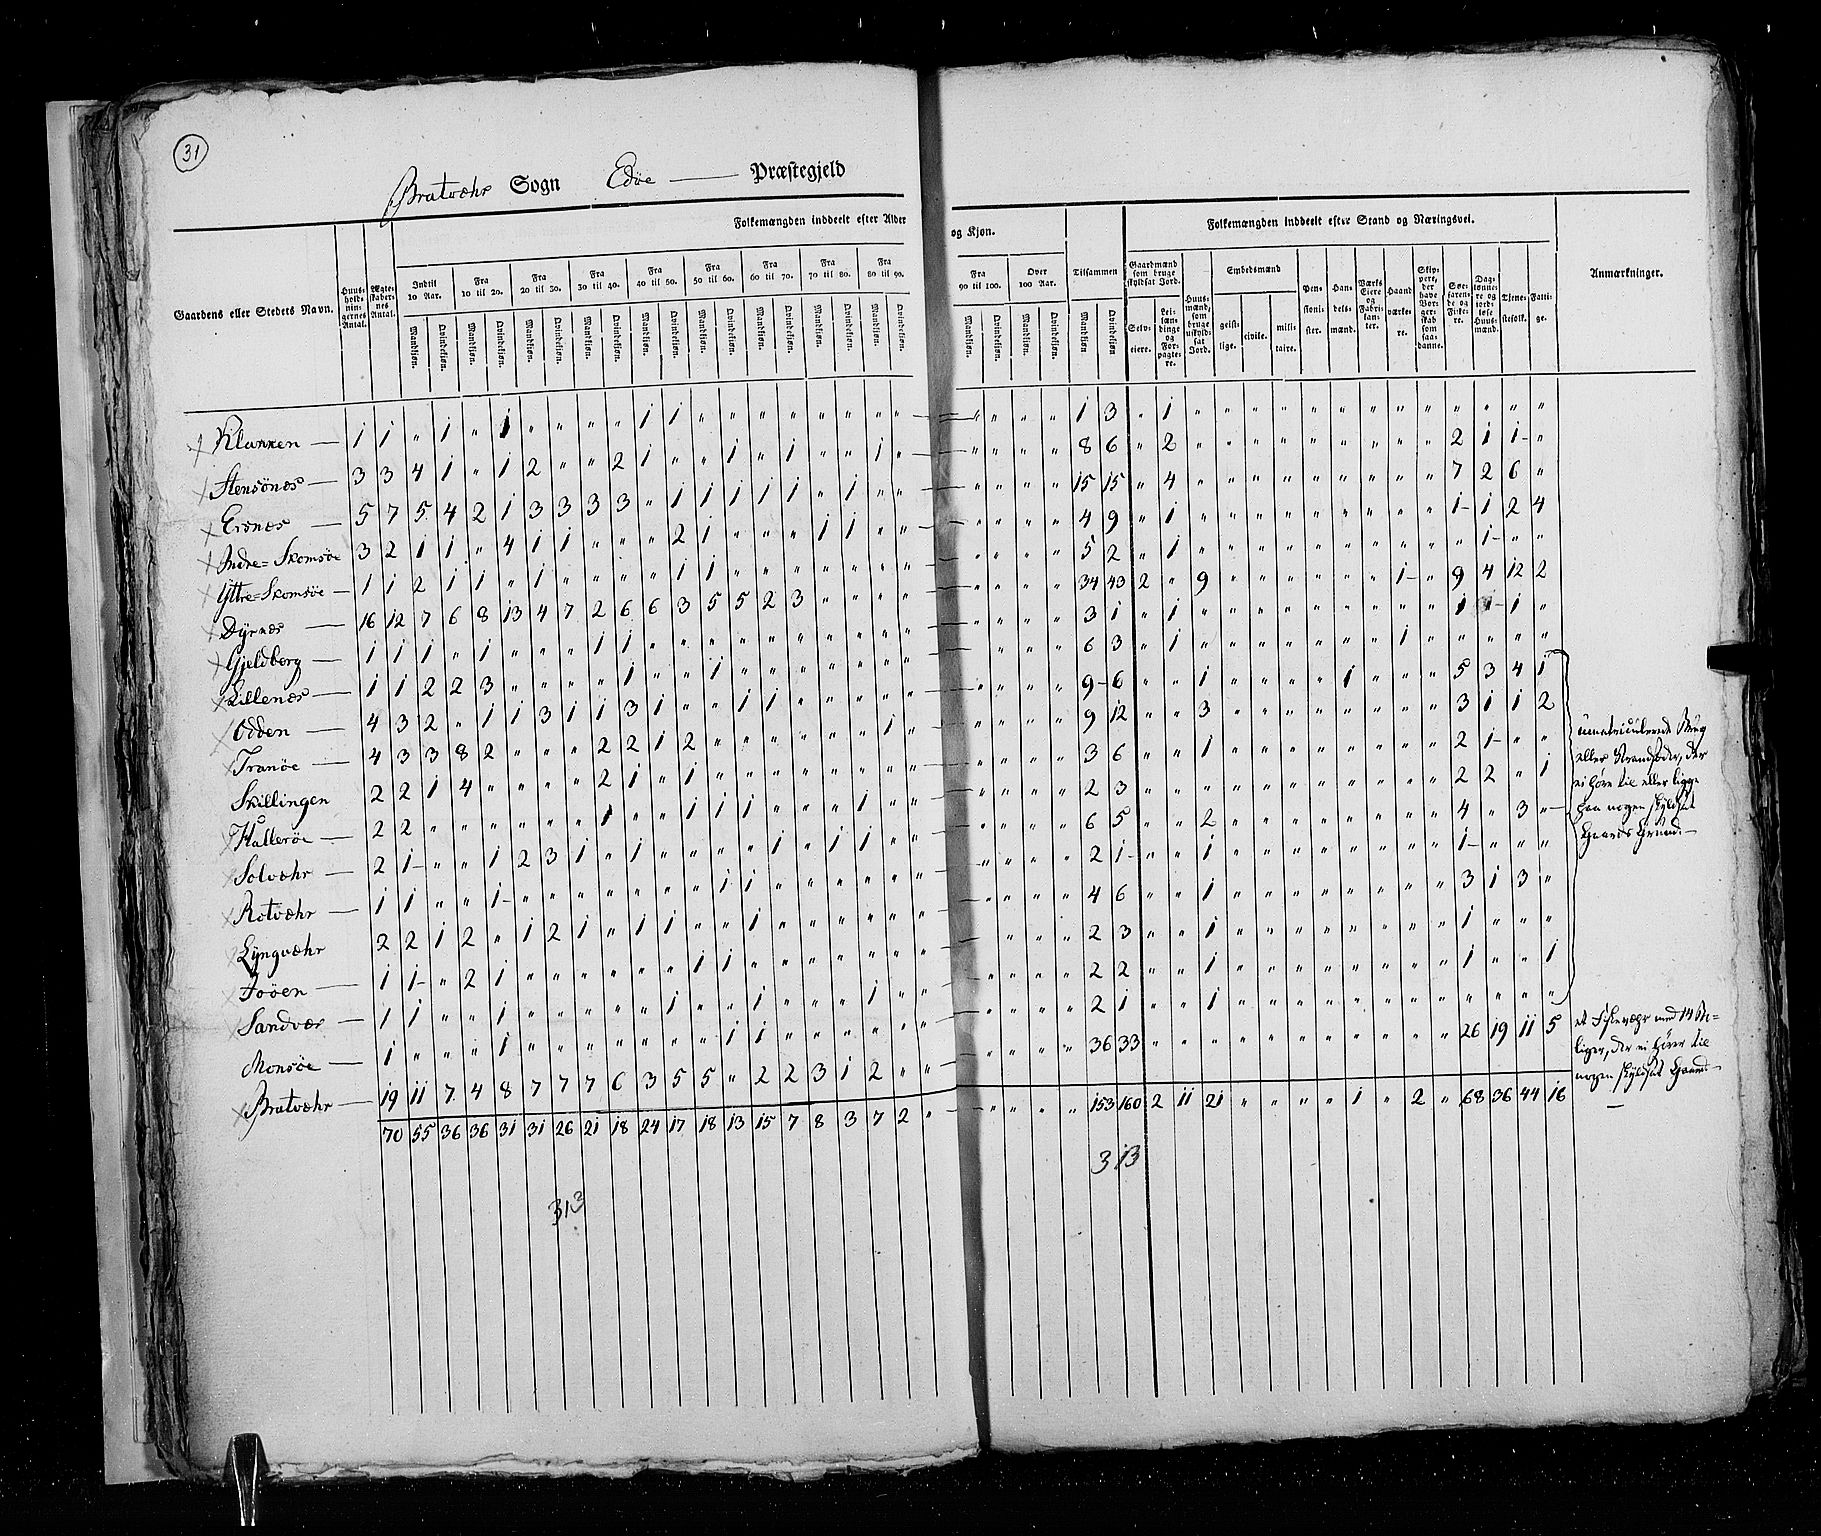 31
Bratvæhr Sogn Edöe — Præstegjeld
Folkemængden inddeelt efter Alder og Kjøn.
Folkemængden inddeelt efter Stand og Næringsvei.
Gaardens eller Stedets Navn.
Huusholdningernes Antal.
Ægteskabernes Antal.
Indtil 10 Aar.
Fra 10 til 20.
Fra 20 til 30.
Fra 30 til 40.
Fra 40 til 50.
Fra 50 til 60.
Fra 60 til 70.
Fra 70 til 80.
Fra 80 til 90.
Fra 90 til 100.
Over 100 Aar.
Tilsammen
Mandkjøn. Qvindekjøn.
Gaardmænd som bruge skyldsat Jord.
Selveiere.
Leilændinge og Forpagtere.
Huusmænd, som bruge uskyldsat Jord.
Embedsmænd
geistlige. civile. militaire.
Pensionister.
Handelsmænd.
Værks Eiere og Fabrikanter.
Haandværkere.
Skippere, der have Borgerskab som saadanne.
Søefarende og Fiskere.
Daglønnere og jordløse Huusmænd.
Tjenestefolk.
Fattige.
Anmærkninger.
Klakken — 1 1 " 1 " 1 " " " " 1 1 " " " " " " " " — " " " " 1 3 " 1 " " " " " " " " " " " " "
Stensönes — 3 3 4 1 " 1 2 " " 2 1 " " 1 " 1 " " 1 " — " " " " 8 6 " 2 " " " " " " " " " 2 1 1 "
Ersnæs — 5 7 5 4 2 1 3 3 3 3 " 1 1 1 1 1 " 1 " " — " " " " 15 15 " 4 " " " " " " " " " 7 2 6 "
Indre=Skomsöe 3 2 1 1 " 4 1 1 " " " 2 1 " " " 1 1 " " — " " " " 4 9 " 1 " " " " " " " " " 1 1 2 4
Yttre=Skomsöe — 1 1 2 1 1 " 1 " " " " 1 1 " " " " " " " — " " " " 5 2 " 1 " " " " " " " " " " 1 " "
Dyrnæs — 16 12 7 6 8 13 4 7 2 6 6 3 5 5 2 3 " " " " — " " " " 34 43 2 " 9 " " " " " " 1 " 9 4 12 2
Gjeldberg — 1 1 1 " 1 " " " 1 1 " " " " " " " " " " — " " " " 3 1 " 1 " " " " " " " " " 1 1 1 "
Lillenæs — 1 1 2 2 3 " " " " 1 " " 1 " " " " " " " — " " " " 6 3 " 1 " " " " " " " 1 " " " " "
Odden — 4 3 2 " 1 1 3 1 1 3 1 " " 1 1 " " " " " — " " " " 9 6 " " 1 " " " " " 1 " " 5 3 4 1
Tranöe — 4 3 3 8 2 " " " 2 2 1 2 " " " " " " 1 " — " " " " 9 12 " " 3 " " " " " " " " 3 1 1 2
Skillingen 2 2 1 4 " " " " 2 1 " 1 " " " " " " " " — " " " " 3 6 " " 1 " " " " " " " " 2 1 " "
Halleröe — 2 2 " " " " " " 1 " " 1 1 1 " " " 1 " " — " " " " 2 3 " " " " " " " " " " " 2 2 " 1
Solvæhr — 2 1 " " 1 2 3 1 " 1 " " " " 1 " 1 1 " " — " " " " 6 5 " " 2 " " " " " " " " 4 " 3 "
Rotvæhr — 1 1 " " 1 " " " " " " " 1 1 " " " " " " — " " " " 2 1 " " 1 " " " " " " " " 1 " " "
Lyngvæhr 2 2 1 2 " 1 2 1 " 1 1 " " 1 " " " " " " — " " " " 4 6 " " 1 " " " " " " " " 3 1 3 "
— 1 1 " 2 1 " " " " " " 1 1 " " " " " " " — " " " " 2 3 " " 1 " " " " " " " " 1 " " "
Sandvær — 1 1 " " 1 " " " " " 1 " " 1 " " " 1 " " — " " " " 2 2 " " 1 " " " " " " " " 1 " " 1
Monsöe — 1 " " " 1 " " " " " " " 1 1 " " " " " " — " " " " 2 1 " " 1 " " " " " " " " " " " "
Bratvæhr — 19 11 7 4 8 7 7 7 6 3 5 5 " 2 2 3 1 2 " " — " " " " 36 33 " " " " " " " " " " " 26 19 11 5
70 55 36 36 31 31 26 21 18 24 17 18 13 15 7 8 3 7 2 " — " " " " 153 160 2 11 21 " " " " 1 " 2 " 68 36 44 16
313
313
umatriculerede Brug
eller Strandsæder, der
ei höre til eller ligge
paa nogen skyldsat
Gaards Grund. —
et Fiskevæhr med 14 Bo=
liger, der ei hörer til
nogen skyldsat Gaard —